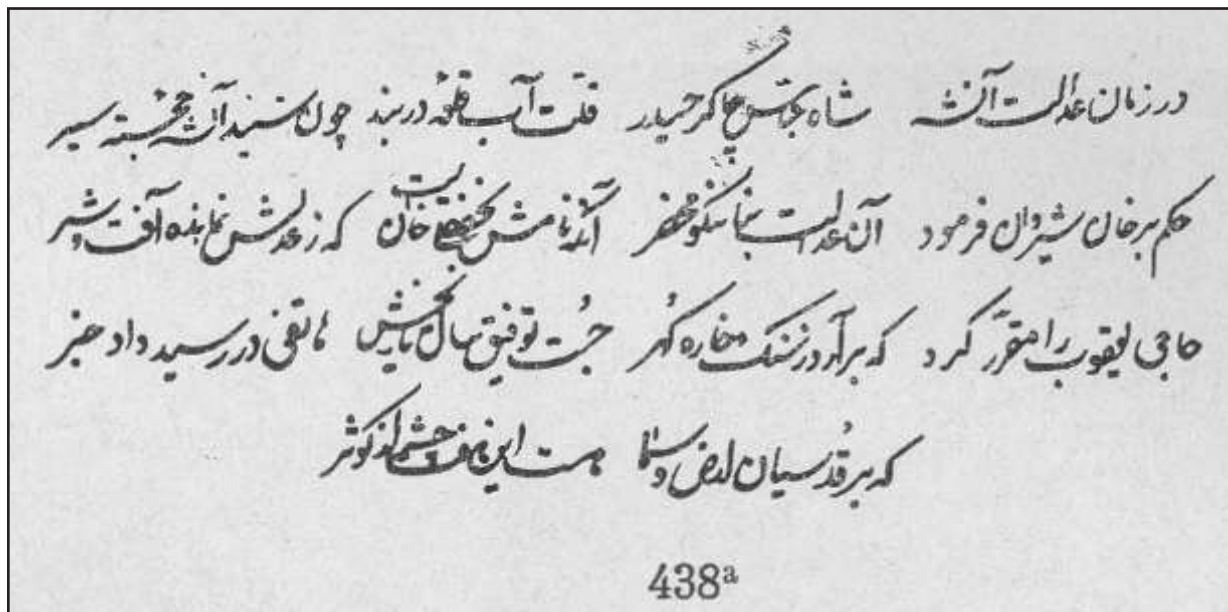 در زمان عدالت آن شه شاه عباس چاکر حیدر قلت آب قلعه دربند چون شنید آن شه خجسته سیر
حکم بر خان شیروان فرمود آن عدالت نیکو محضر آنکه نامش خان که ز عدلش نمانده آفت و شر
حاجی یعقوب را مقرر کرد که برآرد ز سنک خاره گهر جست توفیق سال تاریخش هاتفی در رسید و داد خبر
که بر قدسیان ارض و سما هست این چشمه از کوثر
438ª